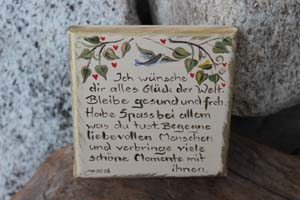 Ich wünsche
dir alles Glück der Welt.
Bleibe gesund und froh.
Habe Spass bei allem
was du tust. Begegne
liebevollen Menschen
und verbringe viele
schöne Momente mit
ihnen.